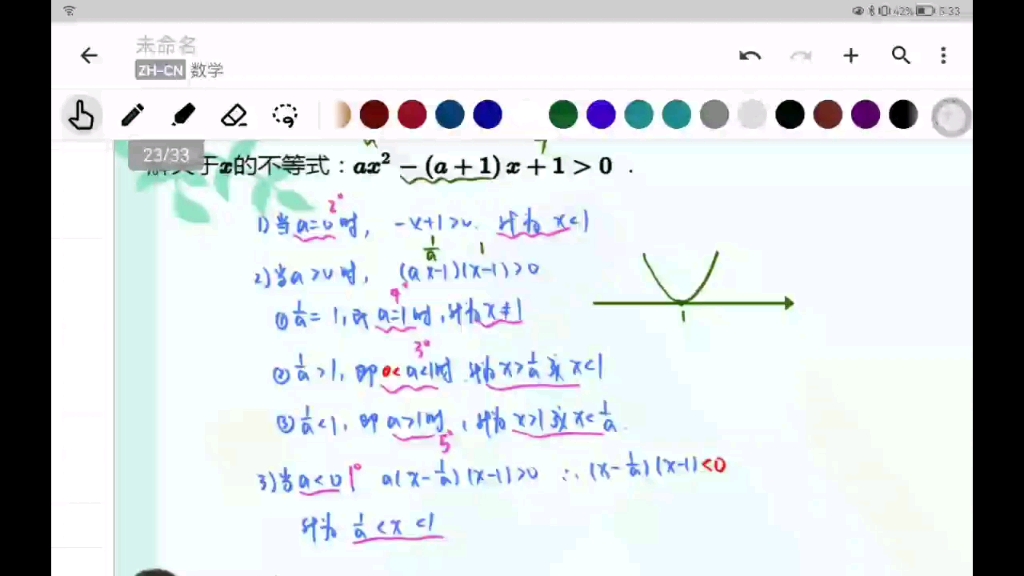 42% 5:33
未命名
ZH-CN 数学
23/33
解关于x的不等式：ax² −(a+1)x+1>0 .
1) 当a=0时, -x+1>0. 解为 x<1
2°
2) 当a>0时, (ax-1)(x-1)>0
1/a 1
① 1/a=1, 即a=1时, 解为x≠1
4°
② 1/a>1, 即0<a<1时 解为x>1/a或x<1
3°
③ 1/a<1, 即a>1时, 解为x>1或x<1/a.
5°
3) 当a<0 1° a(x-1/a)(x-1)>0 ∴(x-1/a)(x-1)<0
解为 1/a<x<1
1